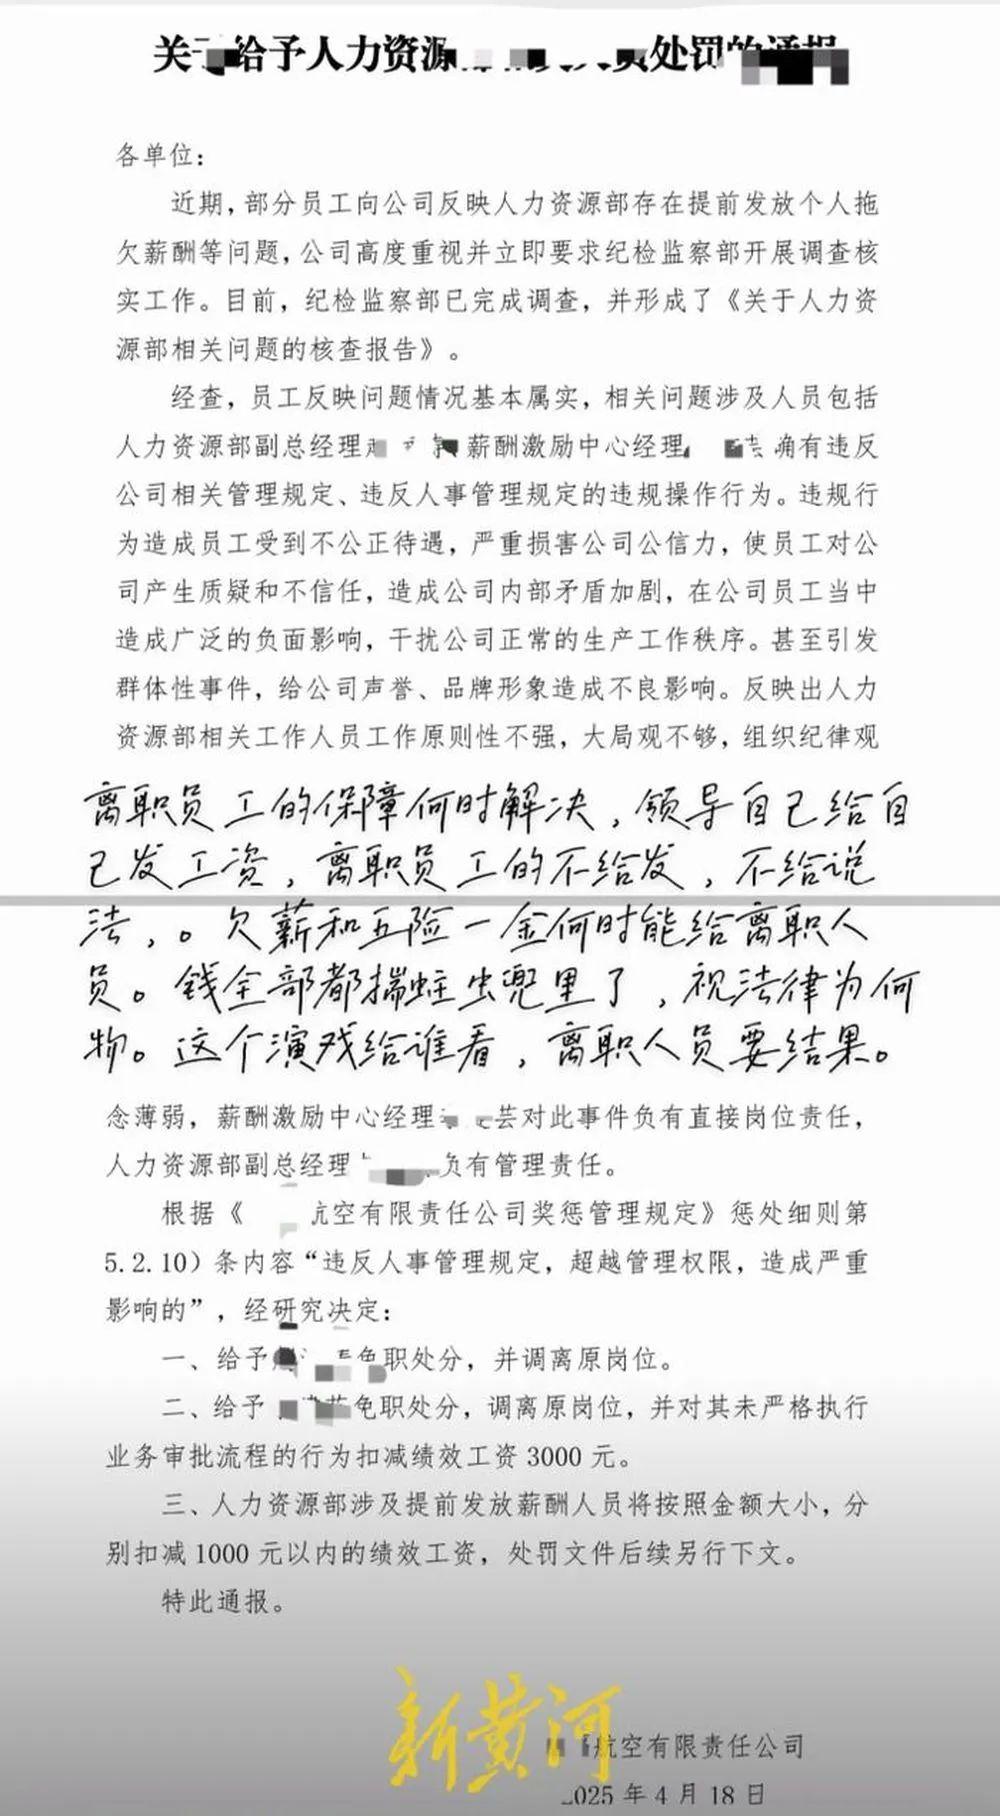 关于给予人力资源处罚的通报
各单位：
近期，部分员工向公司反映人力资源部存在提前发放个人拖
欠薪酬等问题，公司高度重视并立即要求纪检监察部开展调查核
实工作。目前，纪检监察部已完成调查，并形成了《关于人力资
源部相关问题的核查报告》。
经查，员工反映问题情况基本属实，相关问题涉及人员包括
人力资源部副总经理 薪酬激励中心经理 确有违反
公司相关管理规定、违反人事管理规定的违规操作行为。违规行
为造成员工受到不公正待遇，严重损害公司公信力，使员工对公
司产生质疑和不信任，造成公司内部矛盾加剧，在公司员工当中
造成广泛的负面影响，干扰公司正常的生产工作秩序。甚至引发
群体性事件，给公司声誉、品牌形象造成不良影响。反映出人力
资源部相关工作人员工作原则性不强，大局观不够，组织纪律观
离职员工的保障何时解决，领导自己给自
己发工资，离职员工的不给发，不给说
法，。欠薪和五险一金何时能给离职人
员。钱全部都揣蛀虫兜里了，视法律为何
物。这个演戏给谁看，离职人员要结果。
念薄弱，薪酬激励中心经理 芸对此事件负有直接岗位责任，
人力资源部副总经理 负有管理责任。
根据《 航空有限责任公司奖惩管理规定》惩处细则第
5.2.10）条内容“违反人事管理规定，超越管理权限，造成严重
影响的”，经研究决定：
一、给予 免职处分，并调离原岗位。
二、给予 免职处分，调离原岗位，并对其未严格执行
业务审批流程的行为扣减绩效工资 3000 元。
三、人力资源部涉及提前发放薪酬人员将按照金额大小，分
别扣减 1000 元以内的绩效工资，处罚文件后续另行下文。
特此通报。
新黄河
航空有限责任公司
2025 年 4 月 18 日